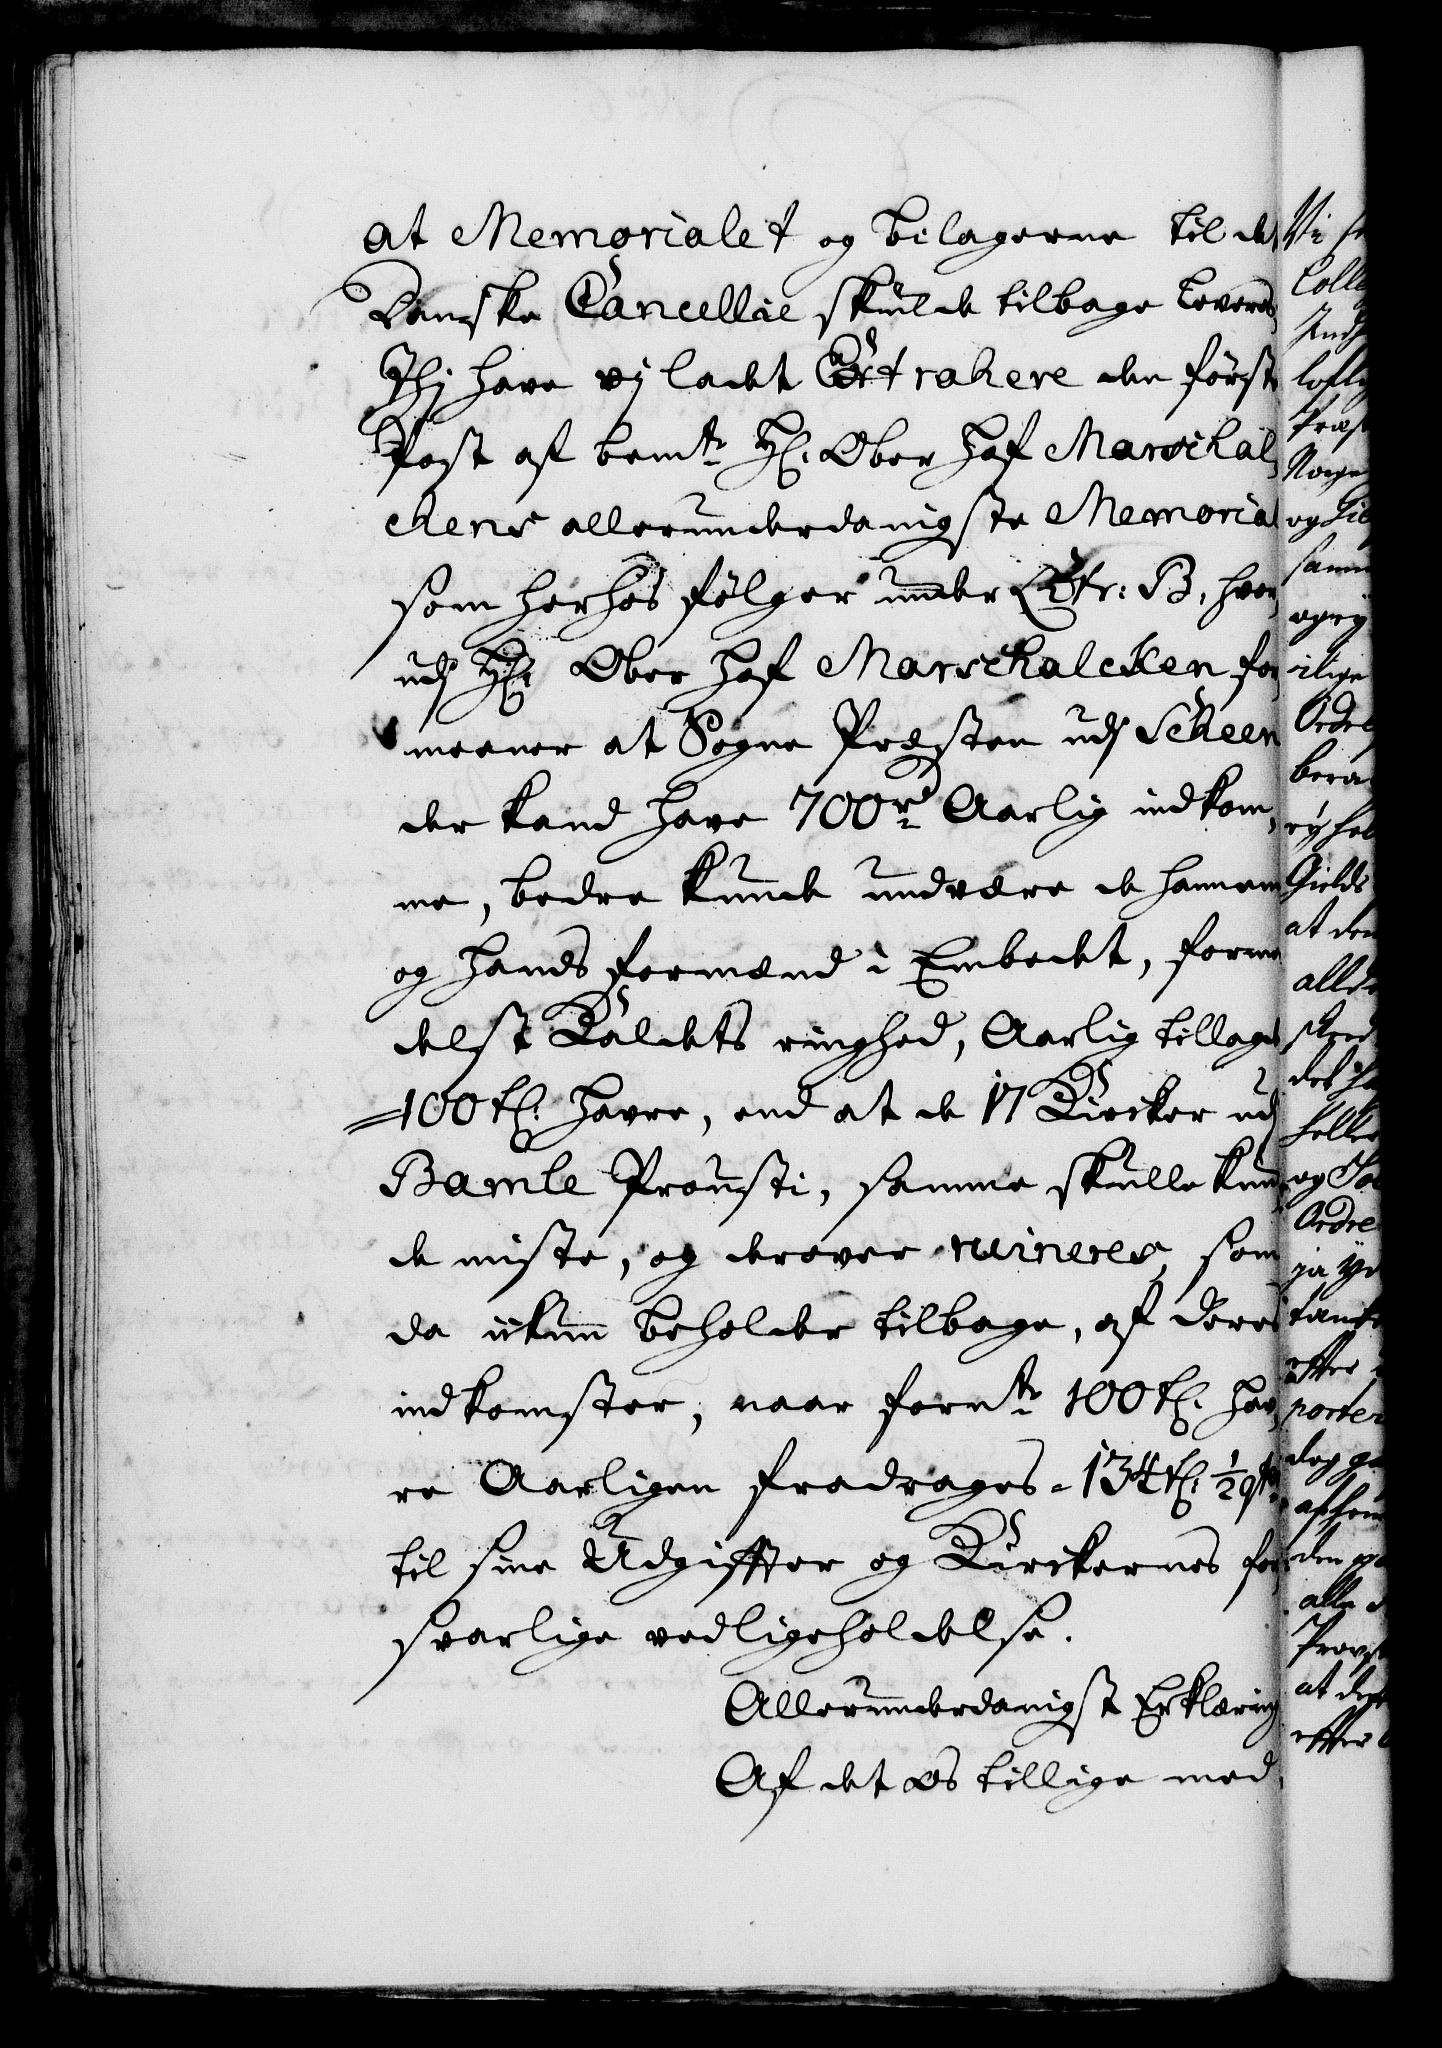 at Memorialet og bilagerne til det
Danske Cancellie skulde tilbage levere,
Thj have vj ladet Extrahere den første
Post af bemte H: Ober Hof Marschal,
ckens allerunderdanigste Memorial
som herhos følger under Ltr: B, hvor,
udj H: Ober Hof Marschalcken for
meener at Sogne Præsten udj Scheen
der kand have 700 rd Aarlig indkom,
me, bedre kunde undvære de hannem
og hands formænd i Embedet, forme
delst Kaldets ringhed, Aarlig tillagde
100 tl: Havre, end at de 17 Kircker udj
Bamle Prousti, samme skulle kun,
de miste, og derover ruineres, som
da ickun beholder tilbage, af deres
indkomster, naar fornte 100 tl: Hav,
re Aarligen fradrages - 134 tl: 1/2
til sine Udgiffter og Kirckernes for
svarlige vedligeholdelse.
Allerunderdanigst Erklæring
Af det os tillige med,
Vi
Ordre
Gields
at den
og
Ordre
at